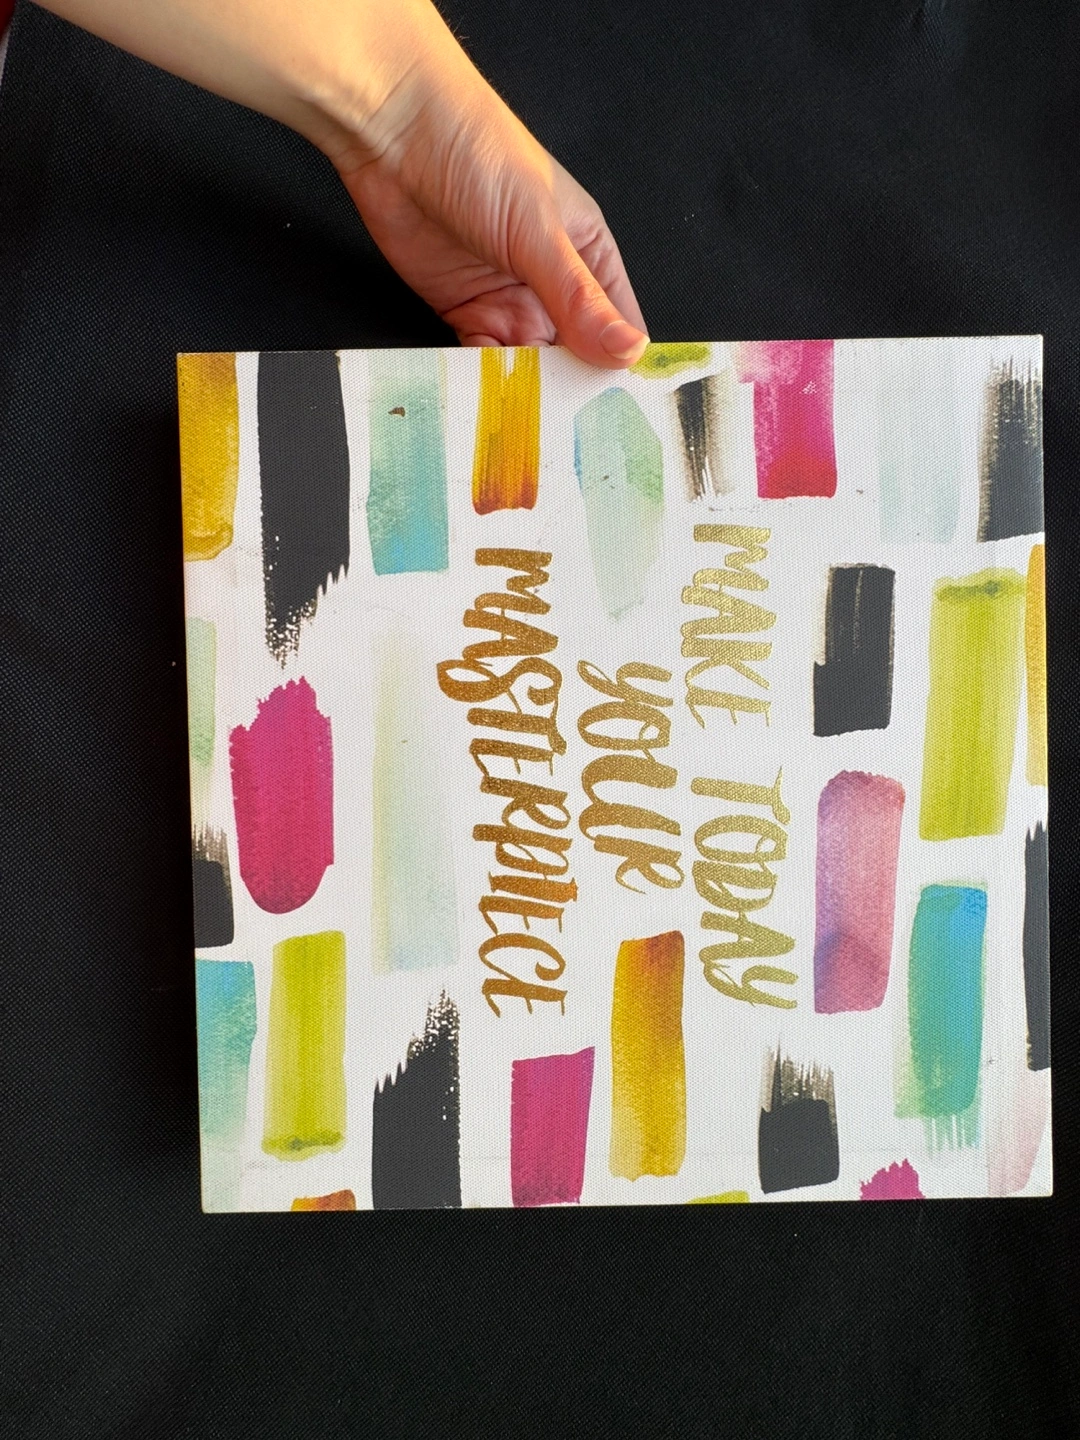 MAKE TODAY
YOUR
MASTERPIECE